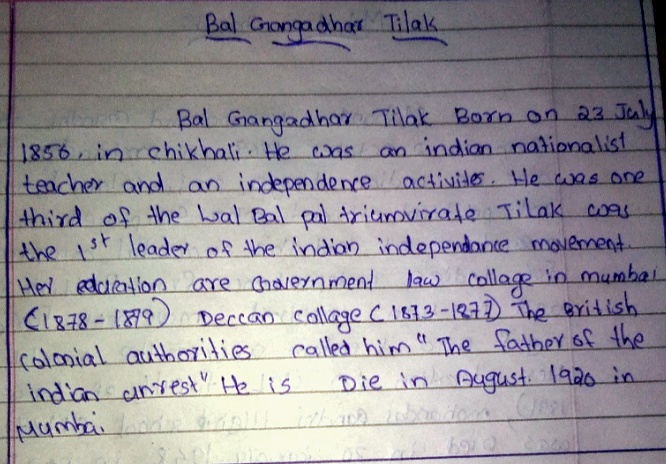 Bal Gangadhar Tilak
Bal Gangadhar Tilak Born on 23 July
1856, in chikhali. He was an indian nationalist
teacher and an independence activites. He was one
third of the Lal Bal pal triumvirate Tilak was
the 1st leader of the indian independance movement.
Her education are Government law collage in mumbai
(1878-1879) Deccan collage (1873-1877) The British
colonial authorities called him "The father of the
indian unrest" He is Die in August 1920 in
Mumbai.